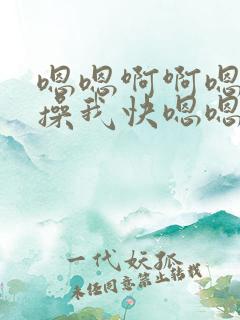 嗯嗯啊啊嗯
操我快嗯嗯
一代妖孤
未经同意禁止转载